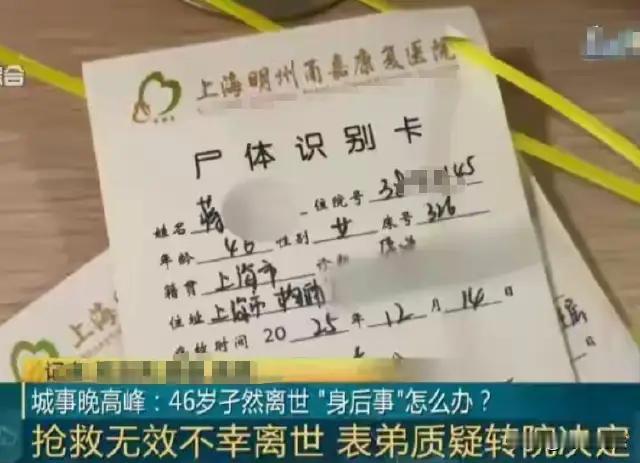 综合
上海明州甬嘉康复医院
尸体识别卡
姓名 蒋 住院号 38 145
年龄 46 性别 女 床号 326
籍贯 上海市
住址 上海市
时间 2025年12月14日
上海明
记者
城事晚高峰：46岁孑然离世 "身后事"怎么办？
抢救无效不幸离世 表弟质疑转院决定